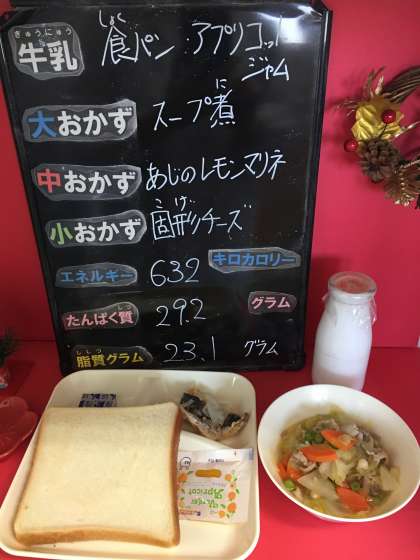 ぎゅうにゅう
牛乳
しょく
食パン アプリコット
ジャム
に
大おかず スープ煮
中おかず あじのレモンマリネ
こけい
小おかず 固形チーズ
エネルギー 632 キロカロリー
しつ
たんぱく質 29.2 グラム
ししつ
脂質グラム 23.1 グラム
Apricot